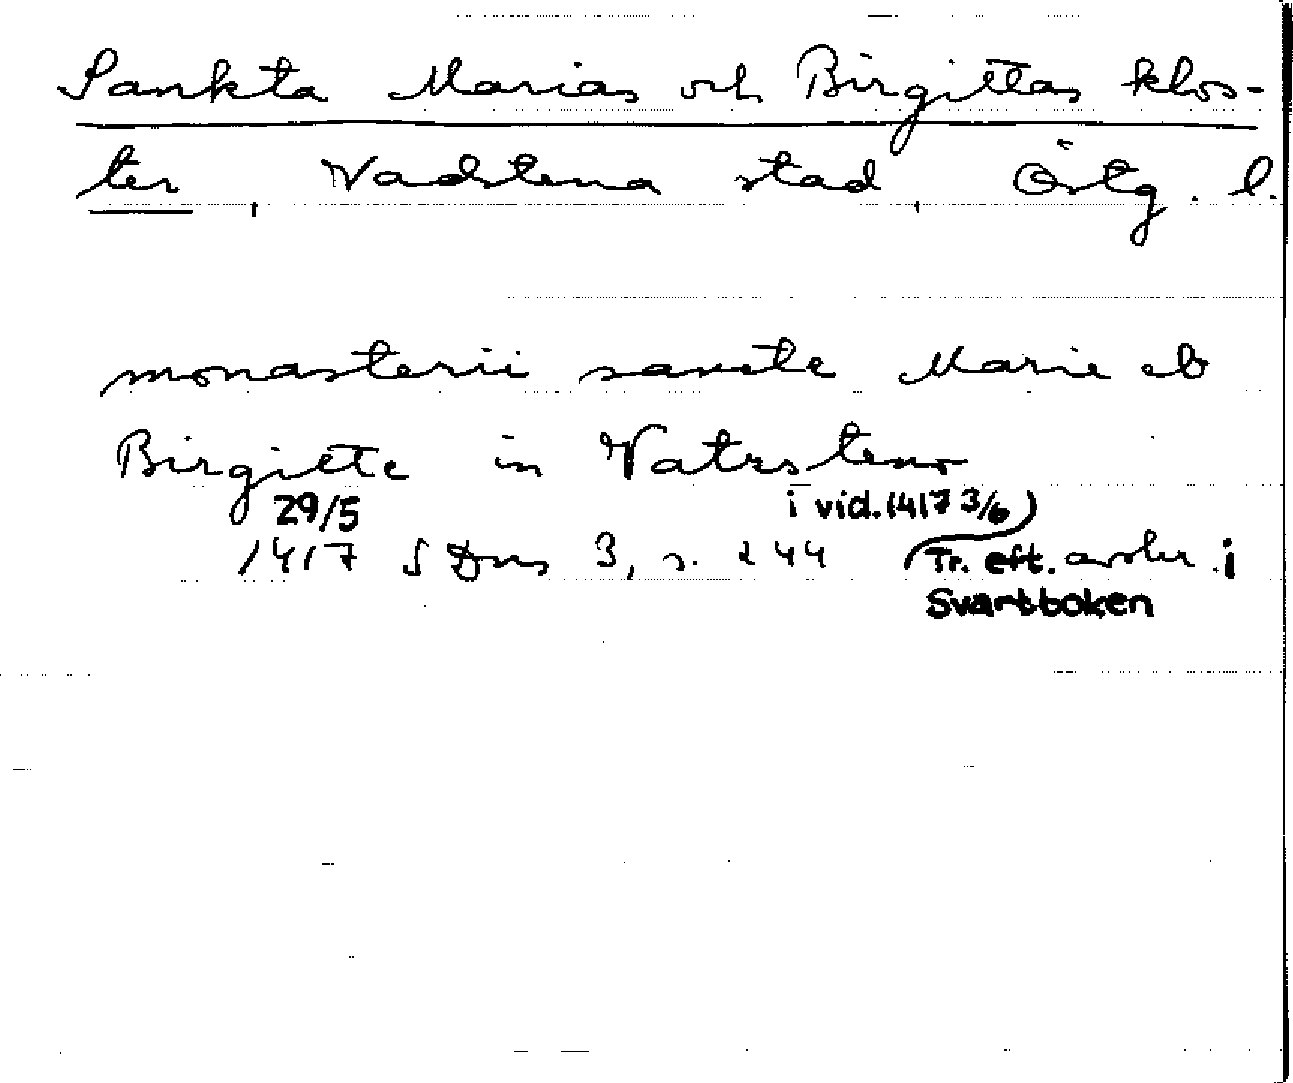 Sankta Marias och Birgittas klos-
ter, Vadstena stad, Östg. l.
monasterii sancte Marie et
Birgitte in Vatzsteno
29/5 i vid. 1417 3/6)
1417 SDns 3, s. 244 (Tr. eft. avskr. i
Svartboken